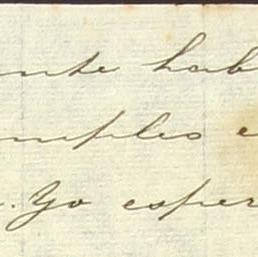 ente hab
mples e
. Yo esper